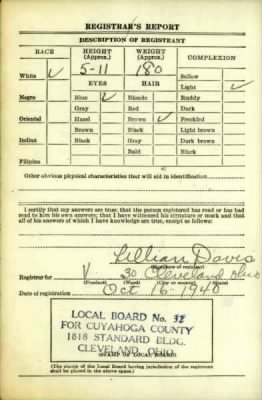 REGISTRAR'S REPORT
DESCRIPTION OF REGISTRANT
RACE HEIGHT (Approx.) WEIGHT (Approx.) COMPLEXION
5-11 180 Sallow
White ✓ EYES HAIR Light ✓
Negro Blue ✓ Blonde Ruddy
Gray Red Dark
Oriental Hazel Brown ✓ Freckled
Brown Black Light brown
Indian Black Gray Dark brown
Bald Black
Filipino
Other obvious physical characteristics that will aid in identification
I certify that my answers are true; that the person registered has read or has had
read to him his own answers; that I have witnessed his signature or mark and that
all of his answers of which I have knowledge are true, except as follows:
Lillian Davis
(Signature of registrar)
Registrar for V 30 Cleveland Ohio
(Precinct) (Ward) (City or county) (State)
Date of registration Oct 16-1940
LOCAL BOARD No. 32
FOR CUYAHOGA COUNTY
1818 STANDARD BLDG.
CLEVELAND, OHIO
(STAMP OF LOCAL BOARD)
(The stamp of the Local Board having jurisdiction of the registrant
shall be placed in the above space.)